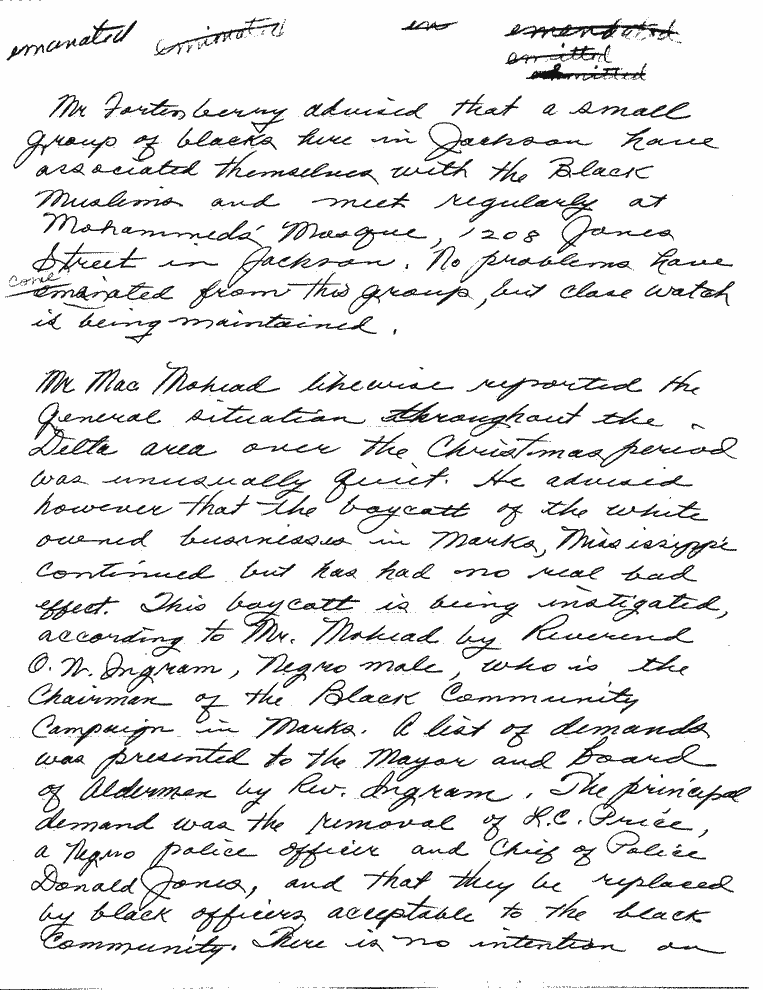 emanated eminated en emendated
emitted
admitted
Mr Fortenberry advised that a small
group of blacks here in Jackson have
associated themselves with the Black
Muslims and meet regularly at
Mohammeds' Mosque, 1208 Jones
Street in Jackson. No problems have
come
emanated from this group, but close watch
is being maintained.
Mr Mac Mohead likewise reported the
general situation throughout the
Delta area over the Christmas period
was unusually quiet. He advised
however that the boycott of the white
owned businesses in Marks, Mississippi
continued but has had no real bad
effect. This boycott is being instigated,
according to Mr. Mohead by Reverend
O.W. Ingram, Negro male, who is the
Chairman of the Black Community
Campaign in Marks. A list of demands
was presented to the Mayor and Board
of Aldermen by Rev. Ingram. The principal
demand was the removal of L.C. Price,
a Negro police officer and Chief of Police
Donald Jones, and that they be replaced
by black officers acceptable to the black
Community. There is no intention on